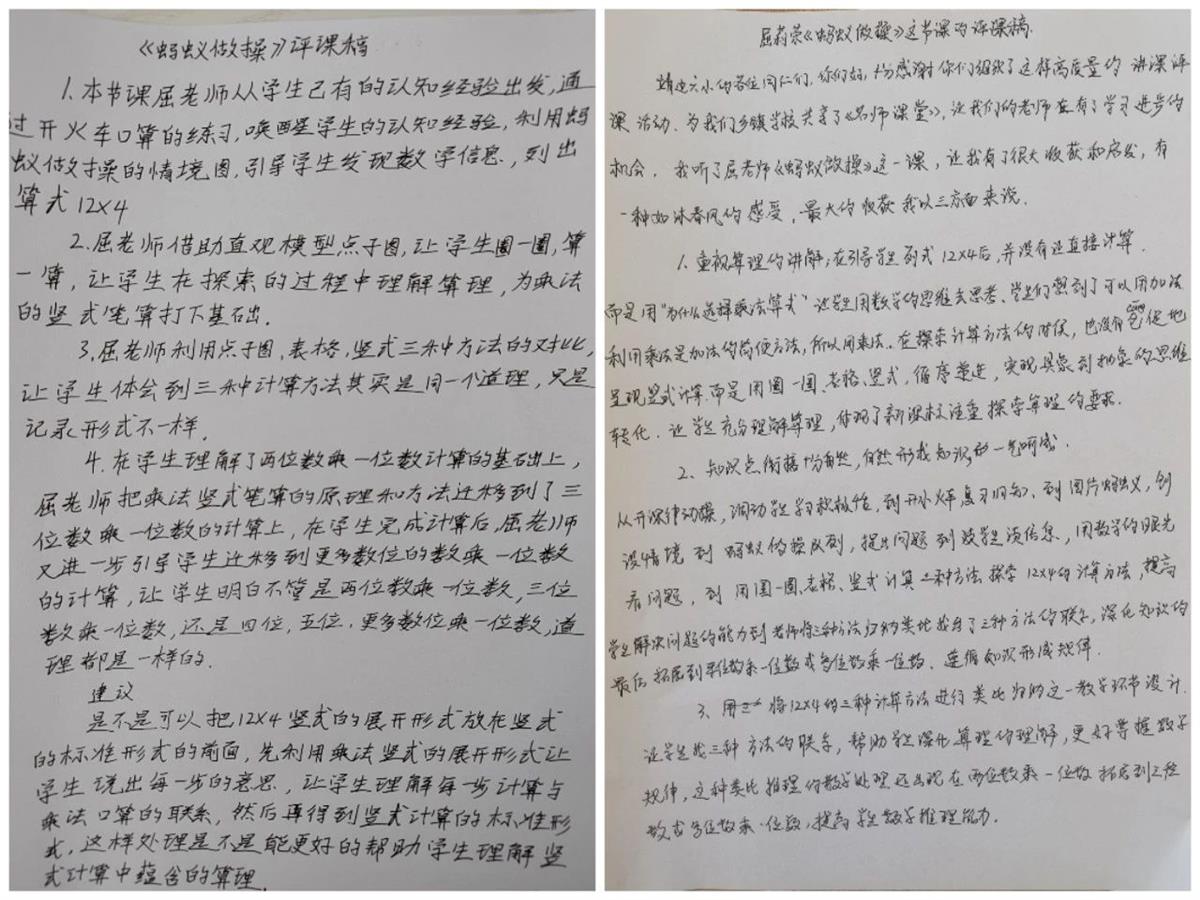 《蚂蚁做操》评课稿
1.本节课屈老师从学生已有的认知经验出发,通
过开火车口算的练习,唤醒学生的认知经验,利用蚂
蚁做操的情境图,引导学生发现数学信息,列出
算式12×4
2.屈老师借助直观模型点子图,让学生圈一圈,算
一算,让学生在探索的过程中理解算理,为乘法
的竖式笔算打下基础.
3.屈老师利用点子图,表格,竖式三种方法的对比,
让学生体会到三种计算方法其实是同一个道理,只是
记录形式不一样.
4.在学生理解了两位数乘一位数计算的基础上,
屈老师把乘法竖式笔算的原理和方法迁移到了三
位数乘一位数的计算上,在学生完成计算后,屈老师
又进一步引导学生迁移到更多数位的数乘一位数
的计算,让学生明白不管是两位数乘一位数,三位
数乘一位数,还是四位,五位,更多数位乘一位数,道
理都是一样的.
建议
是不是可以把12×4竖式的展开形式放在竖式
的标准形式的前面,先利用乘法竖式的展开形式让
学生说出每一步的意思,让学生理解每一步计算与
乘法口算的联系,然后再得到竖式计算的标准形
式,这样处理是不是能更好的帮助学生理解竖
式计算中蕴含的算理.
屈莉荣《蚂蚁做操》这节课的评课稿.
靖边六小的各位同仁们,你们好,十分感谢你们组织了这样高质量的讲课评
课活动.为我们乡镇学校共享了《名师课堂》,让我们的老师在有了学习进步的
机会.我听了屈老师《蚂蚁做操》这一课,让我有了很大收获和启发,有
一种如沐春风的感受,最大的收获我以三方面来说.
1.重视算理的讲解;在引导学生列式12×4后,并没有让直接计算.
而是用"为什么选择乘法算式"让学生用数学的思维去思考.学生们想到了可以用加法
利用乘法是加法的简便方法,所以用乘法.在探索计算方法的时候,也没有急促地
呈现竖式计算.而是用圈一圈、表格、竖式,循序渐进,实现具象到抽象的思维
转化.让学生充分理解算理,体现了新课标注重探索算理的要求.
2.知识点衔接十分自然,自然形成知识的一气呵成.
从开课律动操,调动学生学习积极性,到开小火车复习旧知,到图片蚂蚁,创
设情境到蚂蚁的操队列,提出问题到让学生读信息,用数学的眼光
看问题,到用圈一圈、表格、竖式计算三种方法探索12×4的计算方法,提高
学生解决问题的能力到老师将三种方法归纳类比找出了三种方法的联系,深化知识的
最后拓展到三位数乘一位数或多位数乘一位数、遵循知识形成规律.
3.用将12×4的三种计算方法进行类比归纳这一教学环节设计.
让学生找三种方法的联系,帮助学生深化算理的理解,更好掌握数学
规律,这种类比推理的教学处理还出现在两位数乘一位数拓展到三位
数或多位数乘一位数,提高学生数学推理能力.